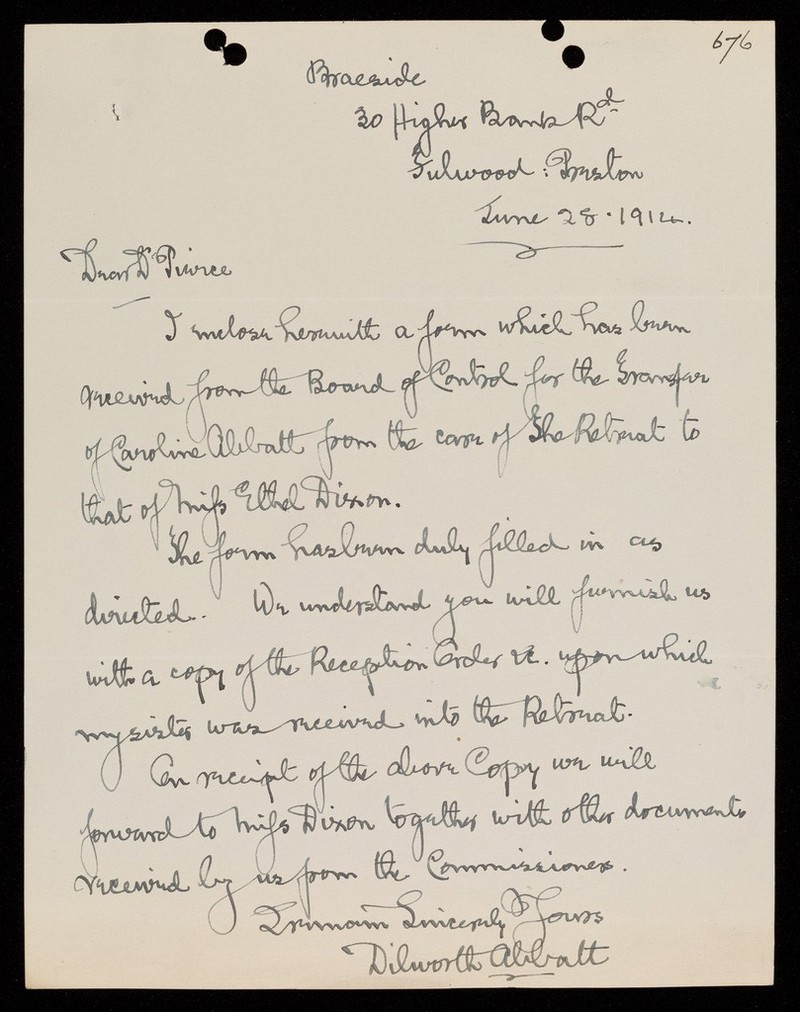 676
Braeside
30 Higher Bank Rd
Fulwood : Preston
June 28 · 1914.
Dear Dr Pierce
I enclose herewith a form which has been
received from the Board of Control for the Transfer
of Caroline Abbatt from the care of The Retreat to
that of Miss Ethel Dixon.
The form has been duly filled in as
directed. We understand you will furnish us
with a copy of the Reception Order &c. upon which
my sister was received into the Retreat.
On receipt of the above Copy we will
forward to Miss Dixon together with other documents
received by us from the Commissioners.
I remain Sincerely Yours
Dilworth Abbatt